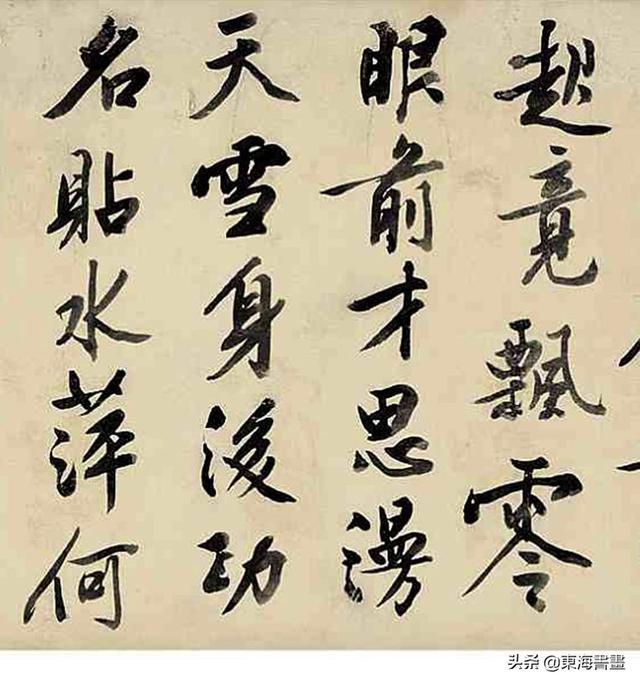 超竟飄零
眼前才思漫
天雪身後功
名貼水萍何
头条 @東海書畫